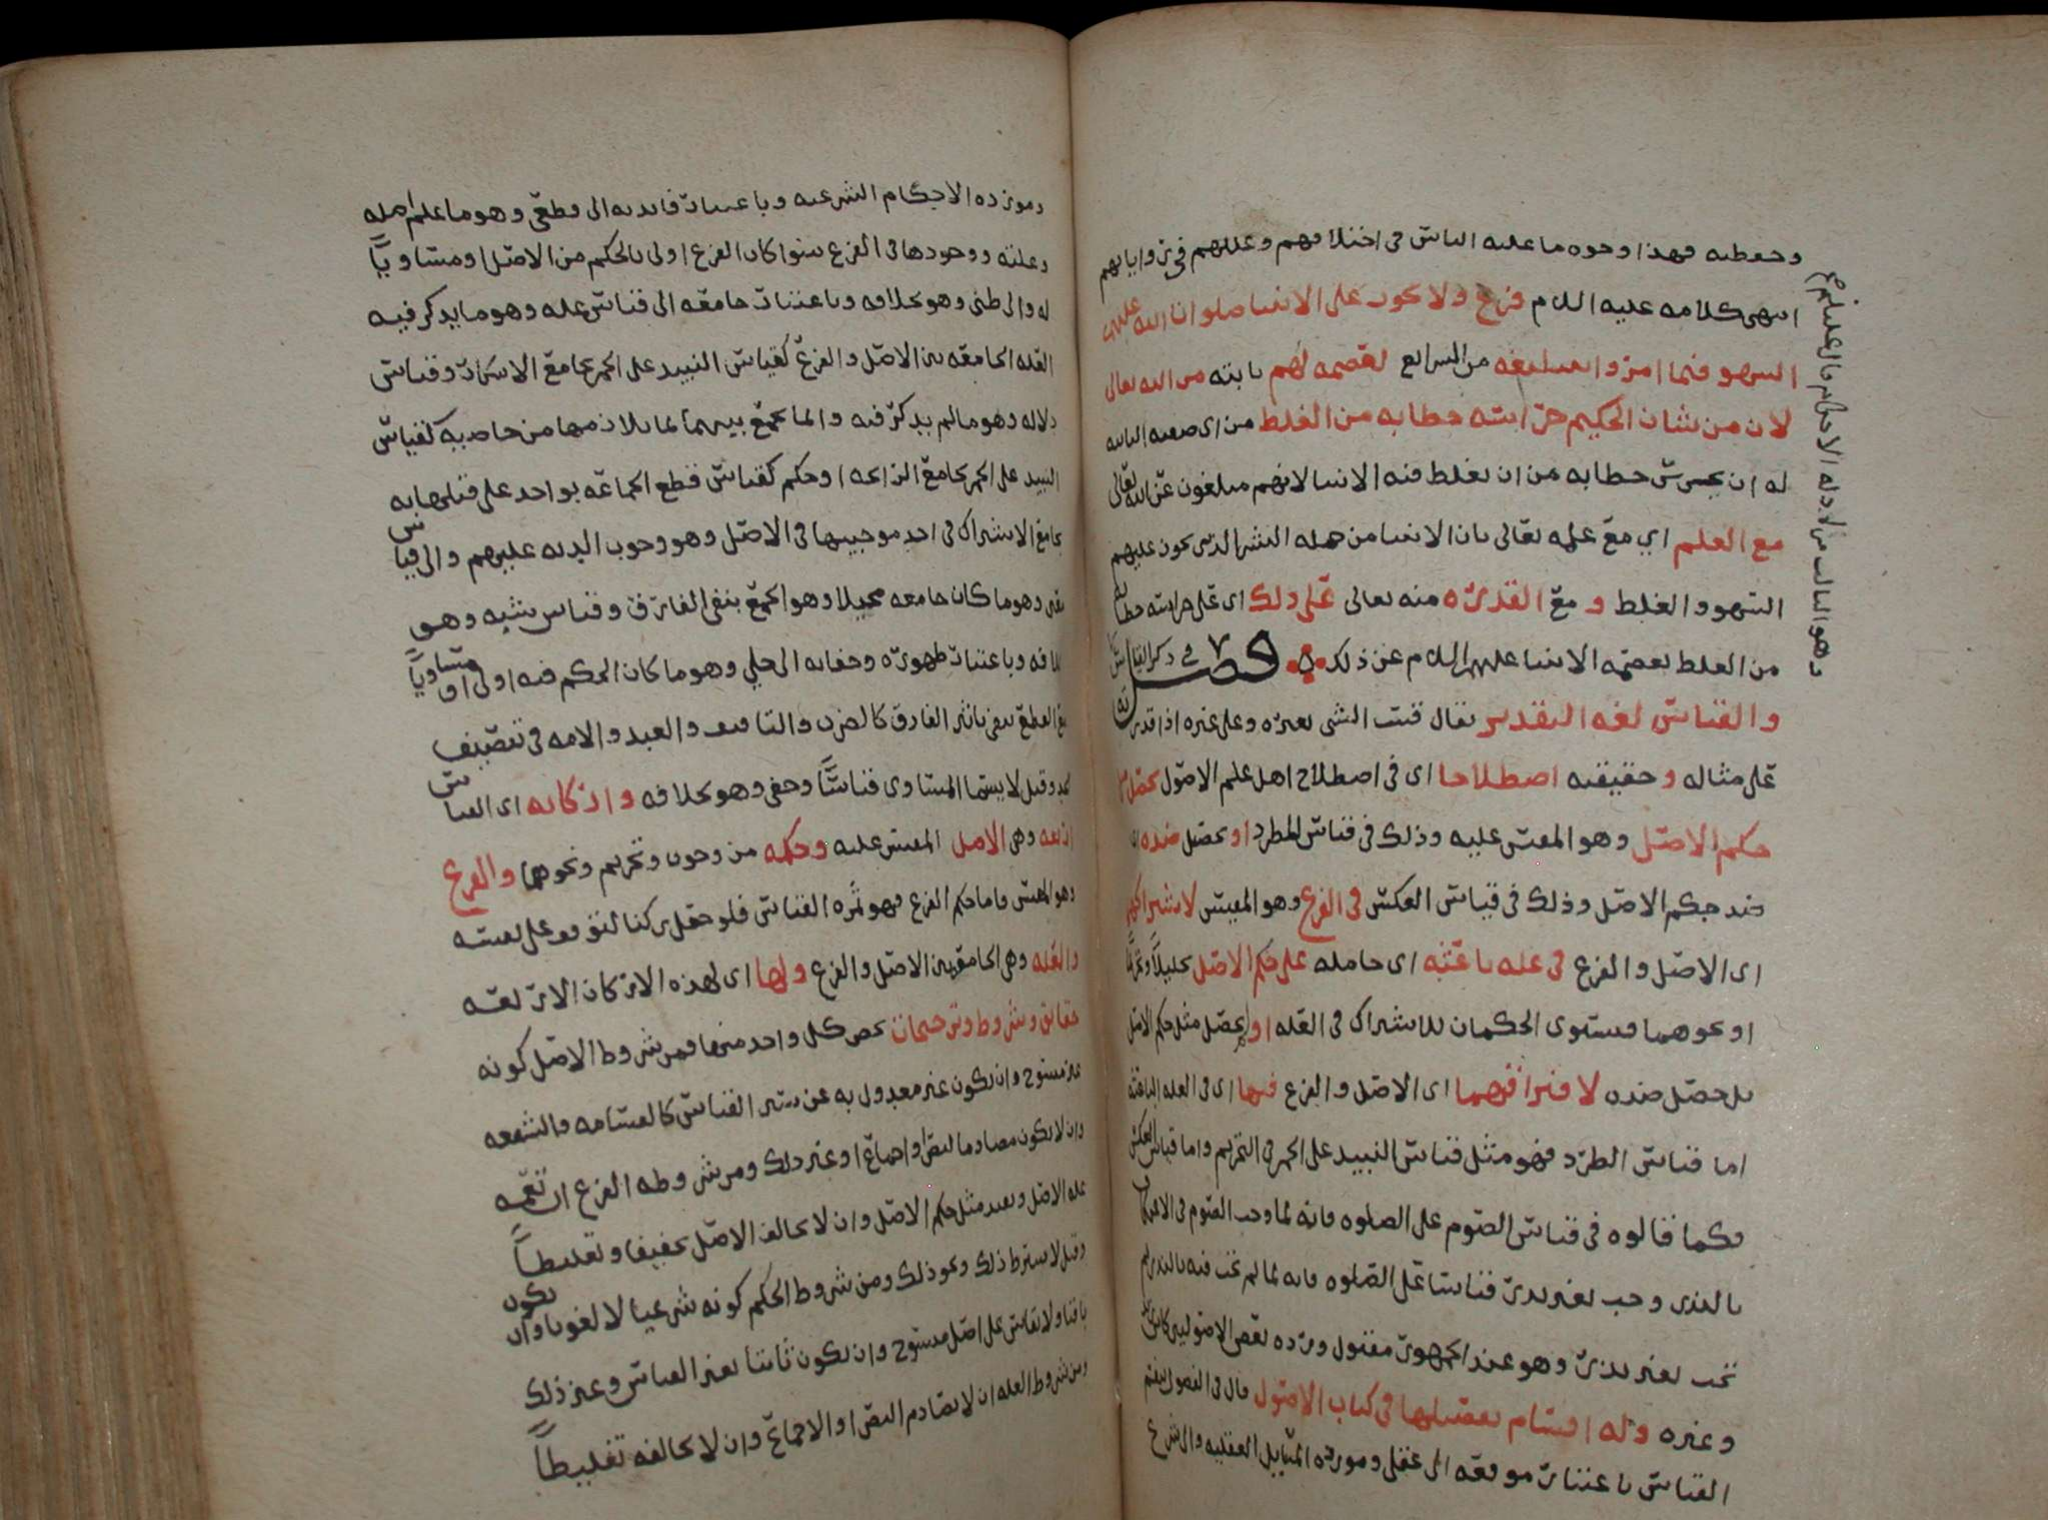 وحفظه فهذا وجوه ما عليه الناس في اختلافهم وعللهم في رواياتهم
انتهى كلامه عليه السلام فرع ولا يجوز على الانبيا صلوات الله عليهم
السهو فيما امروا بتبليغه من الشرايع لعصمه لهم ثابته من الله تعالى
لان من شان الحكيم حراسته خطابه من الغلط من اي صفته الثابته
له ان يحرس خطابه من ان يغلط فيه الانبيا لانهم مبلغون عن الله تعالى
مع العلم اي مع علمه تعالى بان الانبيا من جمله البشر الذين يجوز عليهم
السهو والغلط و مع القدره منه تعالى على ذلك اي على حراسته خطابه
من الغلط بعصمه الانبيا عليهم السلام عن ذلك فصل في ذكر القياس
والقياس لغه التقدير يقال قست الشي بغيره وعلى غيره اذا قدرته
على مثاله وحقيقته اصطلاحا اي في اصطلاح اهل علم الاصول تحصيل
حكم الاصل وهو المقيس عليه وذلك في قياس الطرد او تحصيل ضده اي
ضد حكم الاصل وذلك في قياس العكس في الفرع وهو المقيس لاشتراكهما
اي الاصل والفرع في عله باعثه اي حامله على حكم الاصل تحليلاً وتحريماً
او نحوهما فيستوى الحكمان للاشتراك في العله او لم يحصل مثل حكم الاصل
بل حصل ضده لافتراقهما اي الاصل والفرع فيها اي في العله الباعثه
اما قياس الطرد فهو مثل قياس النبيد على الخمر في التحريم واما قياس العكس
فكما قالوه في قياس الصوم على الصلوه فانه لما وجب الصوم في الاعتكاف
بالنذر وجب بغير نذر قياسا على الصلوه فانه لما لم تجب فيه بالنذر لم
تجب بغير نذر وهو عند الجمهور مقبول ورده بعض الاصوليين
وغيره وله اقسام تفصيلها في كتاب الاصول قال في الفصول ينقسم
القياس باعتبار موقعه الى عقلي ومورده المسايل العقليه والى شرعي
وهو الثالث من ادله الاحكام قال عليه السلم
ومورده الاحكام الشرعيه وباعتبار فايدته الى قطعي وهو ما علم اصله
وعلته ووجودها في الفرع سوا كان الفرع اولى بالحكم من الاصل او مساوياً
له والى ظني وهو بخلافه وباعتبار جامعه الى قياس عله وهو ما يذكر فيه
العله الجامعه بين الاصل والفرع كقياس النبيد على الخمر بجامع الاسكار وقياس
دلاله وهو ما لم يذكر فيه وانما يجمع بينهما بما يلازمها من خاصيه كقياس
النبيد على الخمر بجامع الرائحه او حكم كقياس قطع الجماعه بواحد على قتلها به
بجامع الاشتراك في احد موجبيهما في الاصل وهو وجوب الديه عليهم والى قياس
معنى وهو ما كان جامعه مخيلا وهو الجمع بنفى الفارق وقياس شبه وهو
خلافه وباعتبار ظهوره وخفايه الى جلي وهو ما كان الحكم فيه اولى او مساوياً
مع القطع بنفي تاثير الفارق كالضرب والتافيف والعبد والامه في تنصيف
الحد وقيل لا يسما المساوى قياساً وخفي وهو بخلافه واركانه اى القياس
اربعه وهى الاصل المقيس عليه وحكمه من وجوب وتحريم ونحوهما والفرع
وهو المقيس فاما حكم الفرع فهو ثمره القياس فلو جعل ركنا لتوقف على نفسه
والعله وهى الجامعه بين الاصل والفرع ولها اى لهذه الاركان الاربعه
حقايق وشروط وترجيحات تخص كل واحد منها فمن شروط الاصل كونه
غير منسوخ وان يكون غير معدول به عن سنن القياس كالقسامه والشفعه
وان لا يكون مصادما لنص او اجماع او غير ذلك ومن شروط الفرع ان تعمه
عله الاصل وتفيد مثل حكم الاصل وان لا يخالف الاصل تخفيفا وتغليظاً
وقيل لا يشترط ذلك ونحو ذلك ومن شروط الحكم كونه شرعيا لا لغويا وان يكون
باقيا ولا يقاس على اصل منسوخ وان يكون ثابتا بغير القياس وغير ذلك
ومن شروط العله ان لا تصادم النص او الاجماع وان لا تخالفه تغليظاً